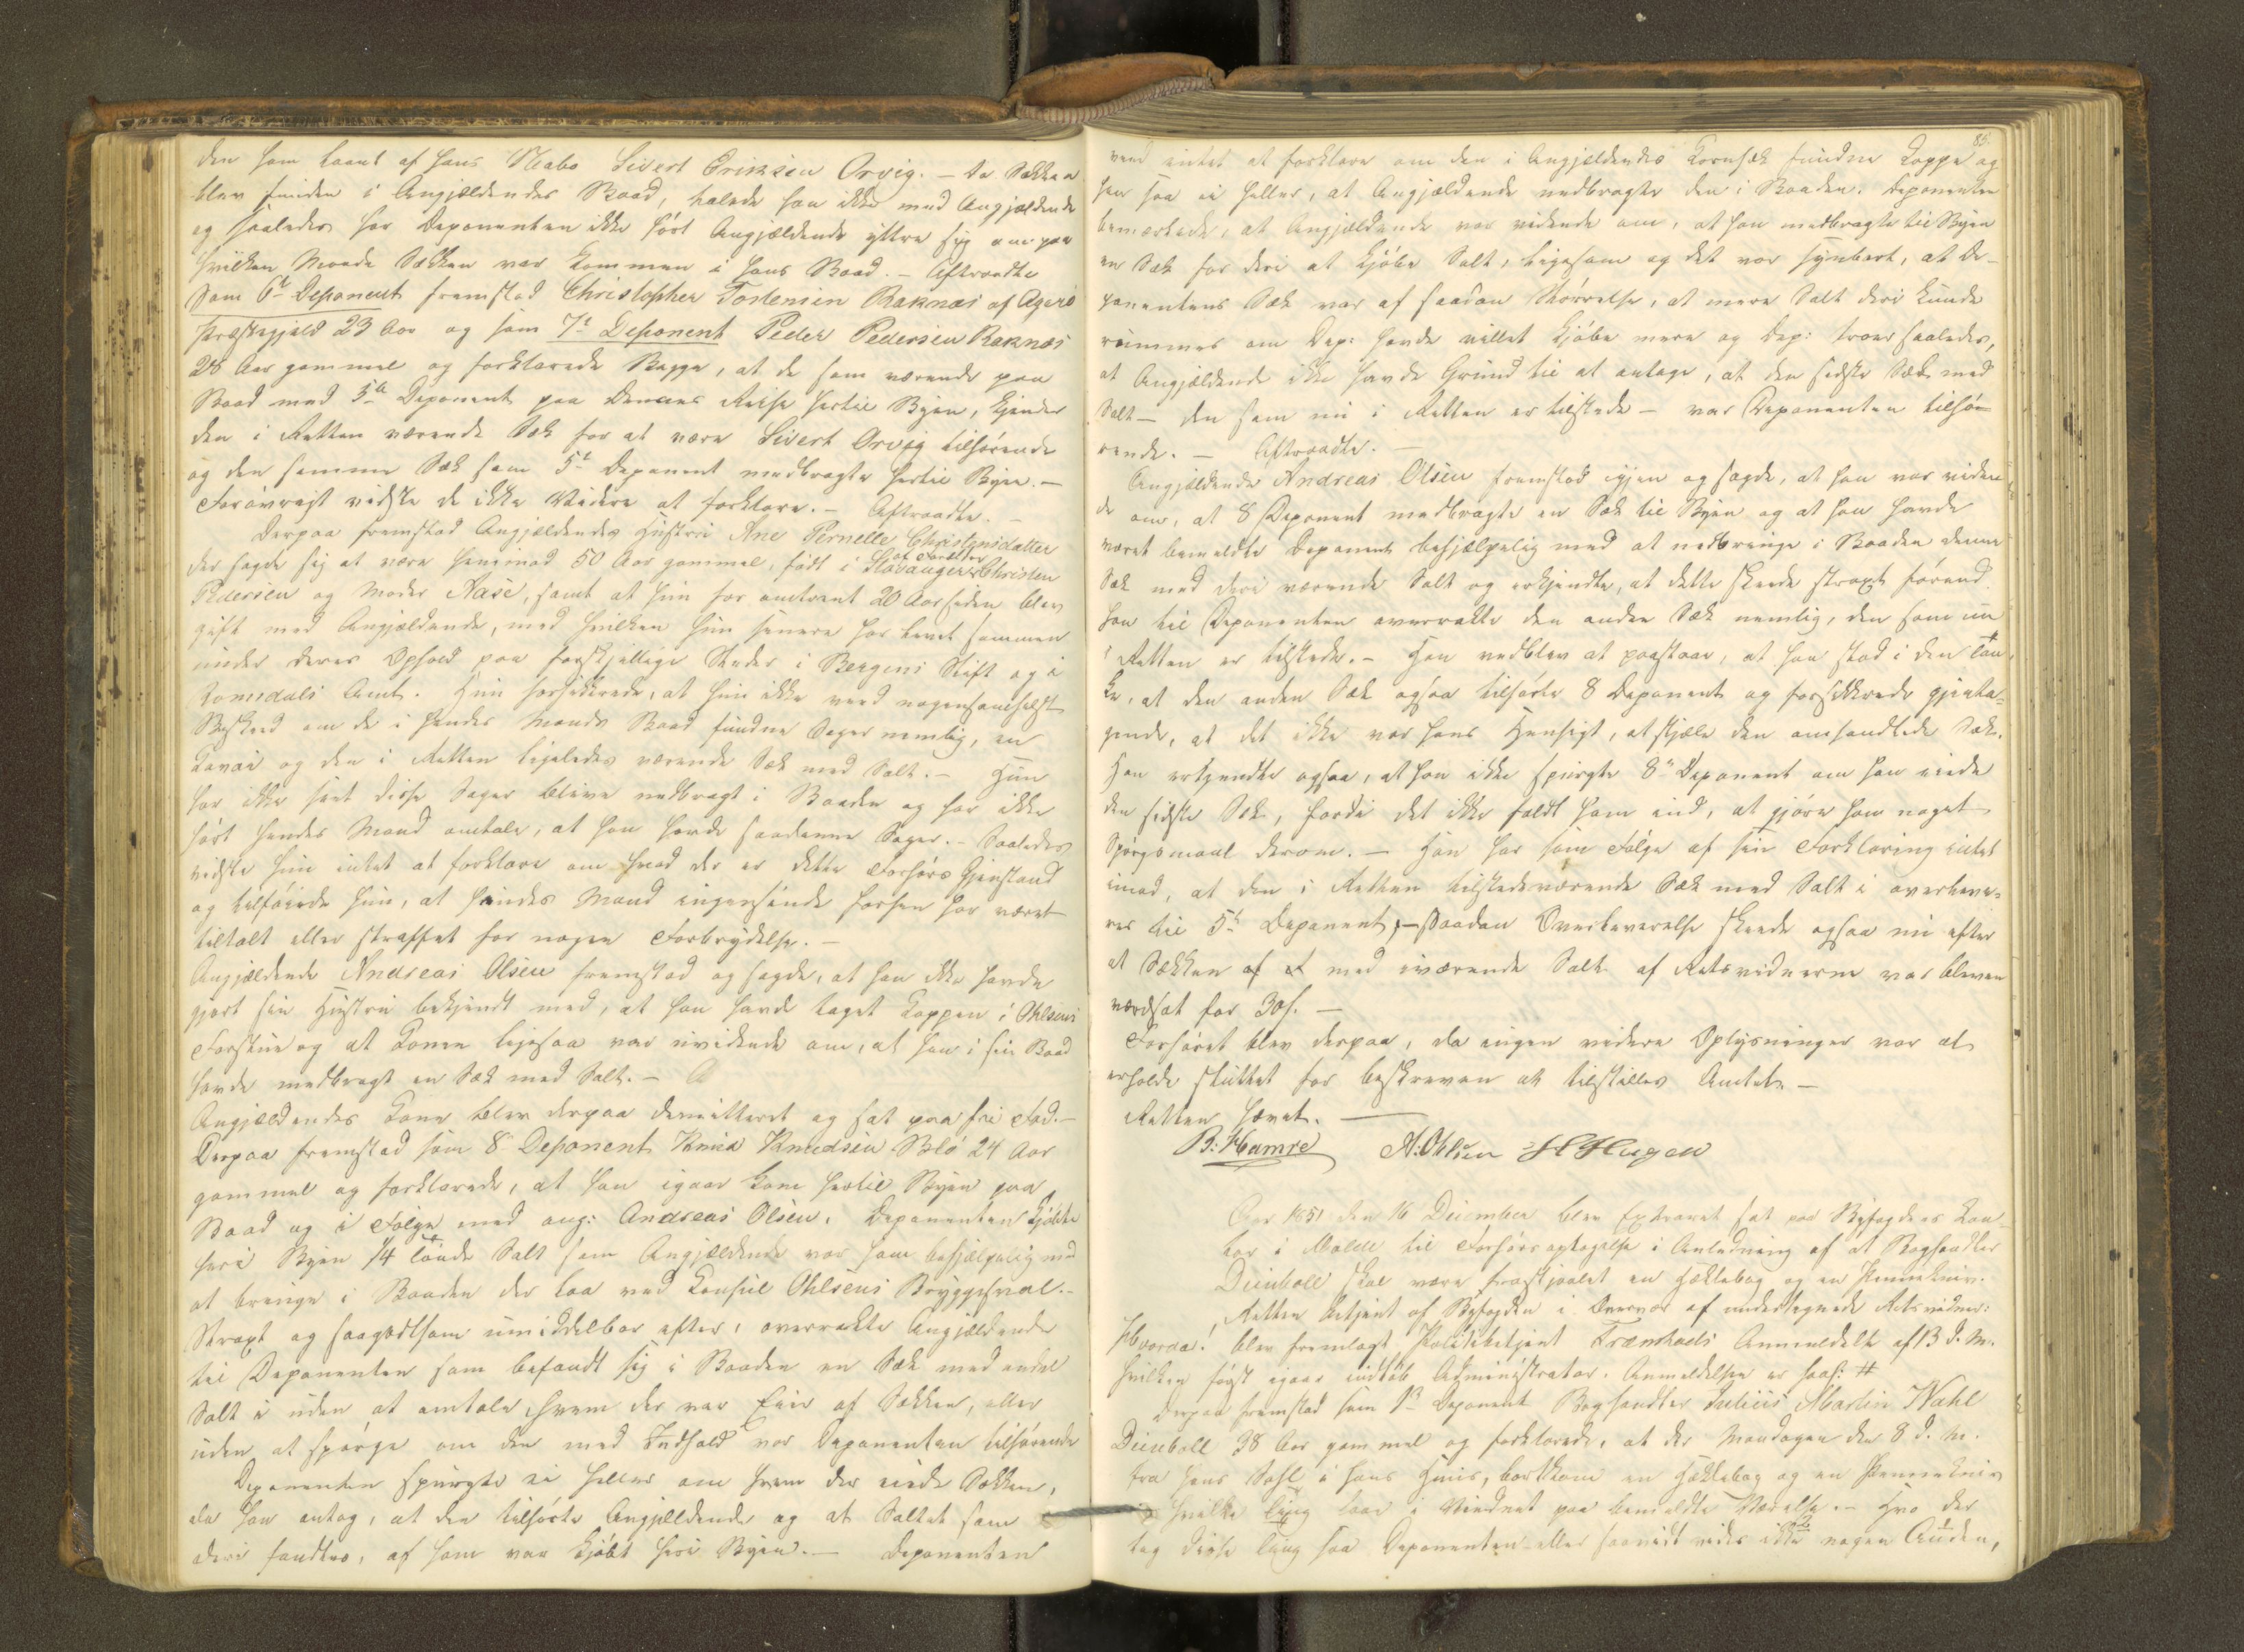 den som laant af hans Nabo Sivert Eriksen Orvig. – Da Sækken
blev funden i Angjældendes Baad, talede han ikke med Angjældende
og saaledes har Deponenten ikke hørt Angjældende yttre sig om paa
hvilken Maade Sækken var kommen i hans Baad. – Aftraadte
Som 6te Deponent fremstod Christopher Tostensen Raknæs af Agerø
Præstegjeld 23 Aar og som 7de Deponent Peder Pedersen Raknæs
28 Aar gammel og forklarede Begge, at de som værende paa
Baad med 5te Deponent paa Dennes Reise hertil Byen, kjender
den i Retten værende Sæk for at være Sivert Orvig tilhørende
og den samme Sæk som 5te Deponent medbragte hertil Byen. –
Forøvrigt vidste de ikke Videre at forklare. – Aftraadte. –
Derpaa fremstod Angjældendes Hustru Ane Pernelle Christensdatter
der sagde sig at være henimod 50 Aar gammel, født i Stavanger af Forældre Christen
Pedersen og Moder Aase, samt at hun for omtrent 20 Aar siden blev
gift med Angjældende, med hvilken hun senere har levet sammen
under deres Ophold paa forskjellige Steder i Bergens Stift og i
Romsdals Amt. Hun forsikkrede, at hun ikke veed nogensomhelst
Beskeed om de i hendes Mands Baad fundne Sager nemlig, en
Kavai og den i Retten ligeledes værende Sæk med Salt. – Hun
har ikke seet disse Sager blive nedbragt i Baaden og har ikke
hørt hendes Mand omtale, at han havde saadanne Sager. – Saaledes
vidste hun intet at forklare om hvad der er dette Forhørs Gjenstand
og tilføiede hun, at hendes Mand ingensinde forhen har været
tiltalt eller straffet for nogen Forbrydelse. –
Angjældende Andreas Olsen fremstod og sagde, at han ikke havde
gjort sin Hustru bekjendt med, at han havde taget Kappen i Ohlsens
Forstue og at Konen ligesaa var uvidende om, at han i sin Baad
havde medbragt en Sæk med Salt. –
Angjældendes Kone blev derpaa demitteret og sat paa fri Fod. –
Derpaa fremstod som 8de Deponent Knud Knudsen Blø 24 Aar
gammel og forklarede, at han igaar kom hertil Byen paa
Baad og i Følge med ang: Andreas Olsen. Deponenten kjøbte
her i Byen 1/4 Tønde Salt som Angjældende var ham behjælpelig med
at bringe i Baaden der laa ved Konsul Ohlsens Bryggehval. –
Strax og saagodtsom umiddelbar efter, overrakte Angjældende
til Deponenten som befandt sig i Baaden en Sæk med andet
Salt i uden at omtale hvem der var Eier af Sækken, eller
uden at spørge om den med Indhold var Deponenten tilhørende
Deponenten spurgte ei heller om hvem der eiede Sækken,
da han antog, at den tilhørte Angjældende og at Saltet som
deri fandtes, af ham var kjøbt her i Byen. – Deponenten
85.
veed intet at forklare om den i Angjældendes Kornsæk fundne Kappe og
han saa ei heller, at Angjældende nedbragte den i Baaden. Deponenten
bemærkede, at Angjældende var vidende om, at han medbragte til Byen
en Sæk for deri at kjøbe Salt, ligesom og det var synbart, at De-
ponentens Sæk var af saadan Størrelse, at mere Salt deri kunde
rummes om Dep: havde villet kjøbe mere og Dep: troer saaledes,
at Angjældende ikke havde Grund til at antage, at den sidste Sæk med
Salt – den som nu i Retten er tilstede – var Deponenten tilhø-
rende. – Aftraadte. –
Angjældende Andreas Olsen fremstod igjen og sagde, at han var viden-
de om, at 8 Deponent medbragte en Sæk til Byen og at han havde
været bemeldte Deponent behjælpelig med at nedbringe i Baaden denne
Sæk med deri værende Salt og erkjendte, at dette skeede straxt førend
han til Deponenten overrakte den anden Sæk nemlig, den som nu
i Retten er tilstede. – Han vedblev at paastaae, at han stod i den Tan-
ke, at den anden Sæk ogsaa tilhørte 8 Deponent og forsikkrede gjenta-
gende, at det ikke var hans Hensigt, at stjæle den omhandlede Sæk.
Han erkjendte ogsaa, at han ikke spurgte 8de Deponent om han eiede
den sidste Sæk, fordi det ikke faldt ham ind, at gjøre ham noget
Spørgsmaal derom. – Han har som Følge af sin Forklaring intet
imod, at den i Retten tilstedeværende Sæk med Salt i overleve-
res til 5te Deponent, – saadan Overleverelse skeede ogsaa nu efter
at Sækken af med iværende Salt af Retsvidnerne var bleven
værdsat for 30 s. –
Forhøret blev derpaa, da ingen videre Oplysninger var at
erholde sluttet for beskreven at tilstilles Amtet. –
Retten hævet. –
B. Hamre A. Ohlsen H Hagen
Aar 1851 den 16 December blev Extraret sat paa Byfogdens Kon-
tor i Molde til Forhørs optagelse i Anledning af at Boghandler
Deinboll skal være frastjaalet en Hæklebog og en Pennekniv.
Retten betjent af Byfogden i Overvær af undertegnede Retsvidner:
Hvorda! blev fremlagt Politibetjent Frænstads Anmeldelse af 13 d. M.
hvilken først igaar indløb Administrator. Anmeldelsen er saal: #
Derpaa fremstod som 1ste Deponent Boghandler Julius Martin Wahl
Deinboll 38 Aar gammel og forklarede, at der Mandagen den 8 d. M.
fra hans Sahl i hans Huus, bortkom en Hæklebog og en Pennekniv
hvilke Ting laae i Vinduet paa bemeldte Værelse. – Hvo der
tog disse Ting saa Deponenten eller saavidt vides ikke nogen Anden,